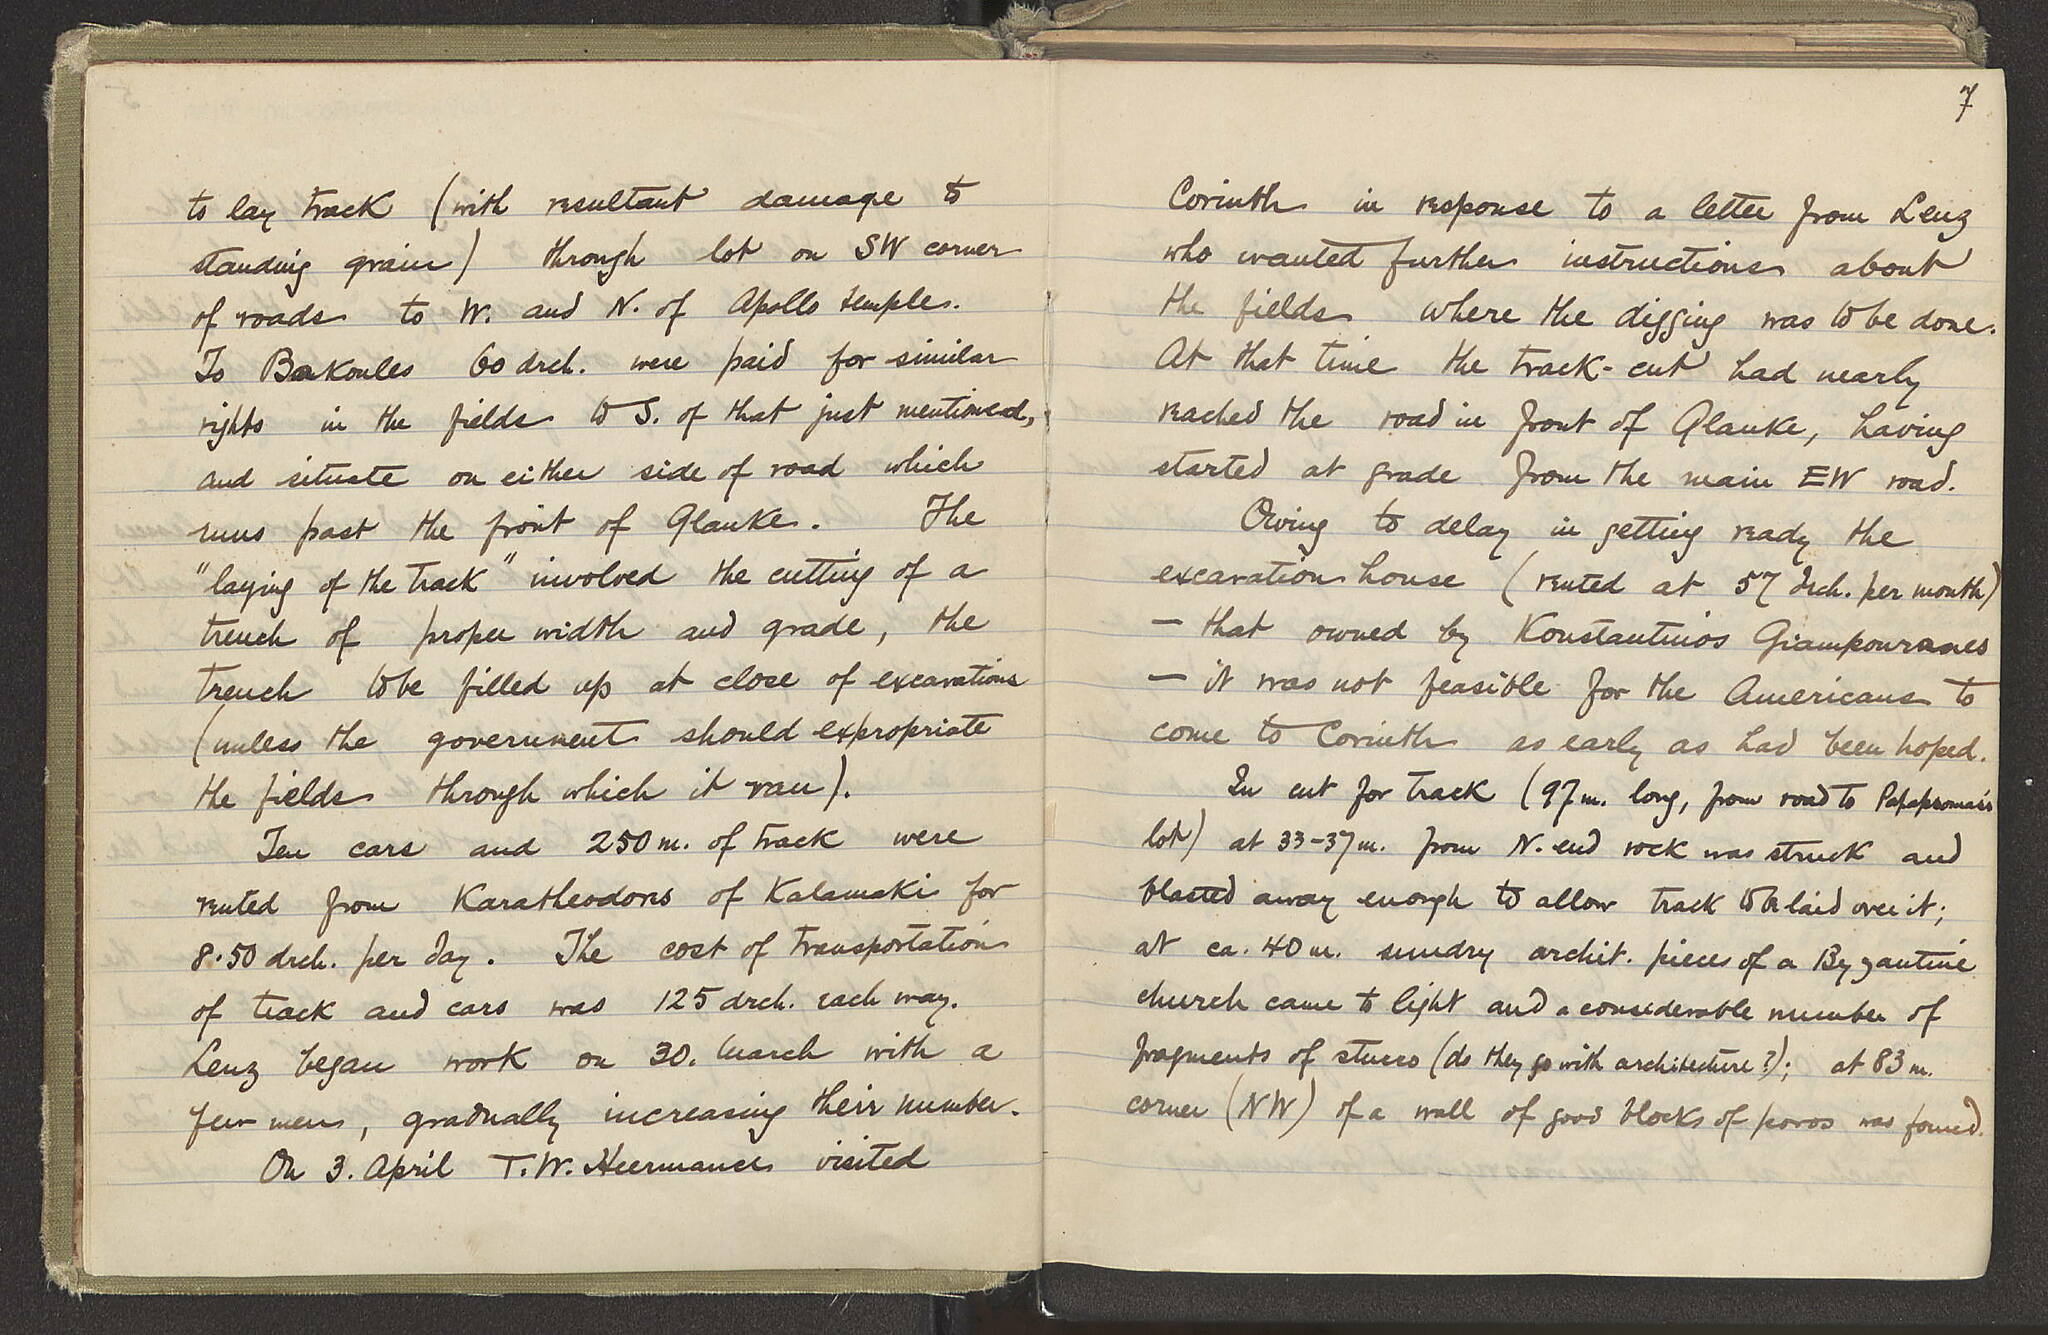 to lay track (with resultant damage to
standing grain) through lot on SW corner
of roads to W. and N. of Apollo temple.
To Bakoules 60 drch. were paid for similar
rights in the fields to S. of that just mentioned,
and situate on either side of road which
runs past the front of Glauke. The
"laying of the track" involved the cutting of a
trench of proper width and grade, the
trench to be filled up at close of excavations
(unless the government should expropriate
the fields through which it ran).
Ten cars and 250 m. of track were
rented from Karatheodoris of Kalamaki for
8.50 drch. per day. The cost of transportation
of track and cars was 125 drch. each way.
Lenz began work on 30. March with a
few men, gradually increasing their number.
On 3. April T.W. Heermance visited
7
Corinth in response to a letter from Lenz
who wanted further instructions about
the fields where the digging was to be done.
At that time the track-cut had nearly
reached the road in front of Glauke, having
started at grade from the main EW road.
Owing to delay in getting ready the
excavation house (rented at 57 drch. per month)
— that owned by Konstantinos Giampouranes
— it was not feasible for the Americans to
come to Corinth as early as had been hoped.
In cut for track (97 m. long, from road to Papapsomas's
lot) at 33-37 m. from N. end rock was struck and
blasted away enough to allow track to be laid over it;
at ca. 40 m. sundry archit. pieces of a Byzantine
church came to light and a considerable number of
fragments of stucco (do they go with architecture?); at 83 m.
corner (NW) of a wall of good blocks of poros was found.